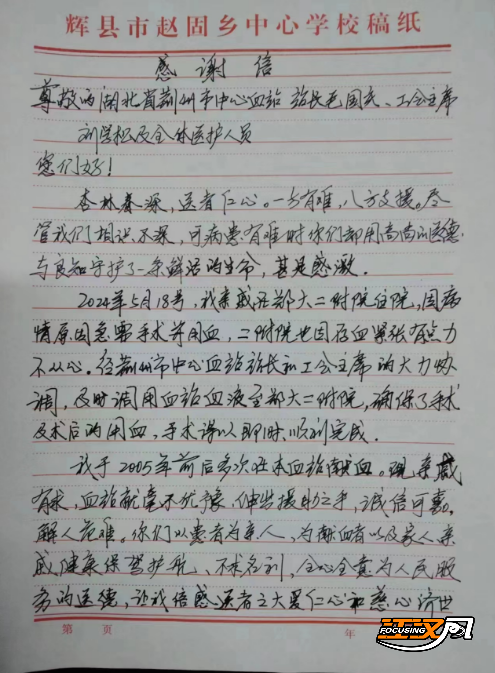 辉县市赵固乡中心学校稿纸
感谢信
尊敬的湖北省荆州市中心血站 站长毛国天、工会主席
刘学松及全体医护人员
您们好！
杏林春深，送者仁心。一方有难，八方支援。尽
管我们相识不深，可病患有难时你们却用高尚的医德
与良知守护了一条鲜活的生命，甚是感激。
2024年5月18号，我亲戚在郑大二附院住院，因病
情原因急需手术并用血，二附院也因存血紧张有点力
不从心。经荆州市中心血站站长和工会主席的大力协
调，及时调用血站血液至郑大二附院，确保了手术
及术后的用血，手术得以即时、顺利完成。
我于2005年前后多次在本血站献血。现亲戚
有求，血站就毫不犹豫，伸出援助之手，诚信可嘉。
解人危难。你们以患者为亲人，为献血者以及家人亲
戚健康保驾护航、不求名利，全心全意为人民服
务的医德，让我倍感医者之大爱仁心和慈心济世
第 页 年
江汉风
FOCUSING